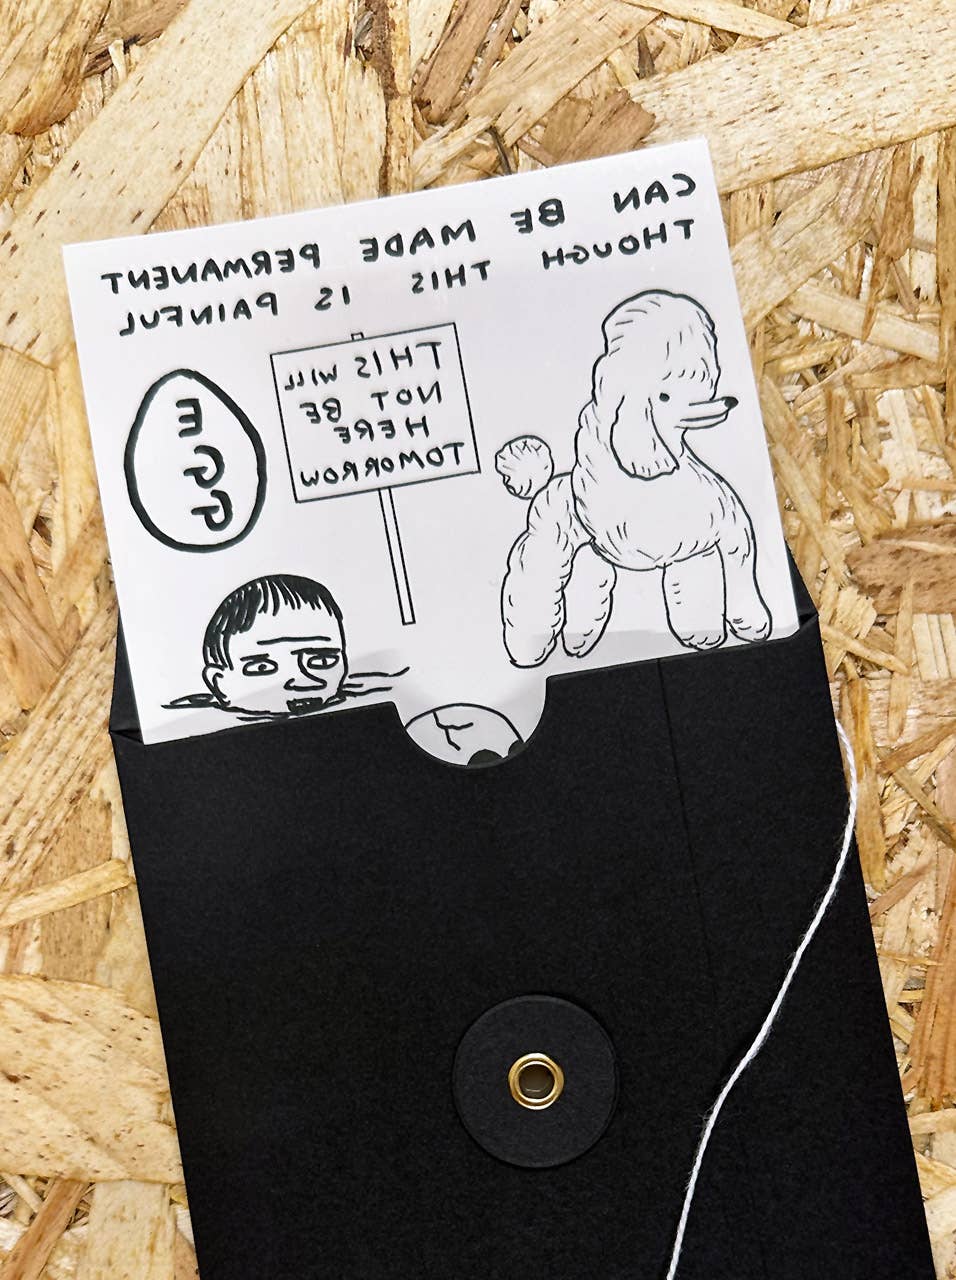 CAN BE MADE PERMANENT
THOUGH THIS IS PAINFUL
THIS WILL
NOT BE
HERE
TOMORROW
EGG